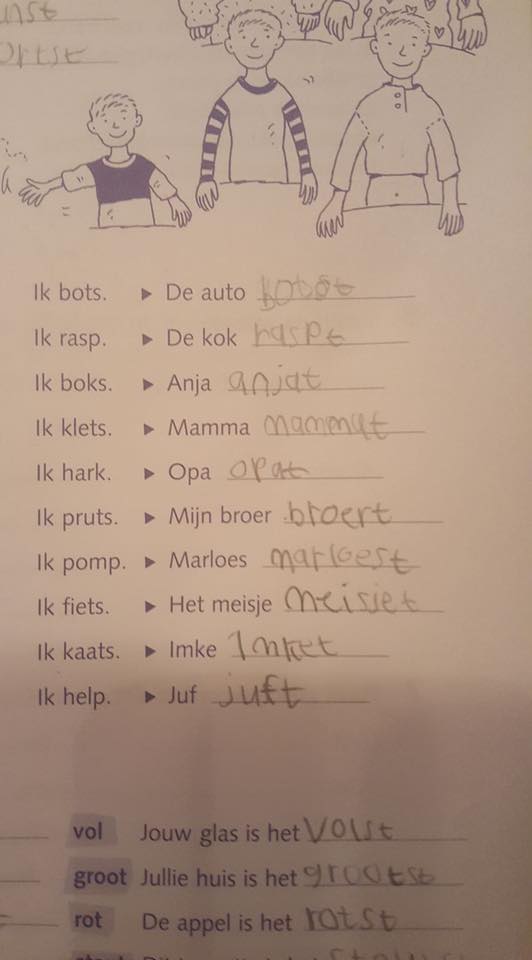 Ik bots. ▶ De auto
Ik rasp. ▶ De kok raspt
Ik boks. ▶ Anja anjat
Ik klets. ▶ Mamma mammat
Ik hark. ▶ Opa opat
Ik pruts. ▶ Mijn broer broert
Ik pomp. ▶ Marloes marloest
Ik fiets. ▶ Het meisje meisjet
Ik kaats. ▶ Imke Imket
Ik help. ▶ Juf juft
vol Jouw glas is het Volst
groot Jullie huis is het grootst
rot De appel is het rotst